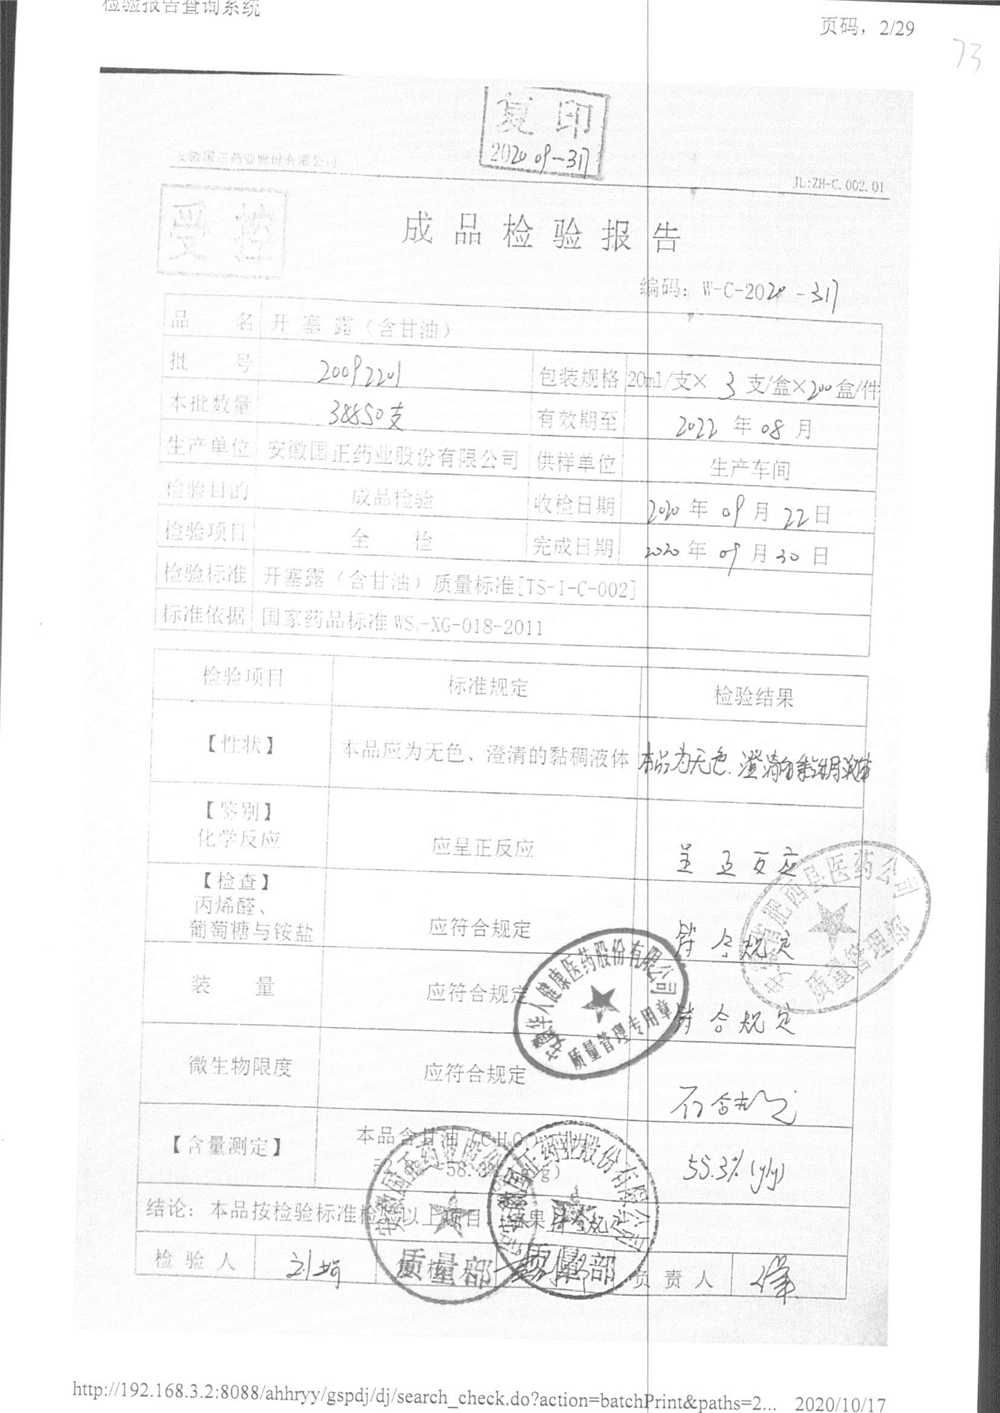 检验报告查询系统
页码，2/29
73
复印
2020 09-317
安徽国正药业股份有限公司
JL:ZH-C.002.01
受控
成品检验报告
编码：W-C-2020-317
品 名 开塞露（含甘油）
批 号 20092201 包装规格 20ml/支×3支/盒×200盒/件
本批数量 38850支 有效期至 2022年08月
生产单位 安徽国正药业股份有限公司 供样单位 生产车间
检验目的 成品检验 收检日期 2020年09月22日
检验项目 全 检 完成日期 2020年09月30日
检验标准 开塞露（含甘油）质量标准[TS-I-C-002]
标准依据 国家药品标准WS-XG-018-2011
检验项目 标准规定 检验结果
【性状】 本品应为无色、澄清的黏稠液体 本品为无色、澄清的黏稠液体
【鉴别】
化学反应 应呈正反应 呈正反应
【检查】
丙烯醛、
葡萄糖与铵盐 应符合规定 符合规定
装 量 应符合规定 符合规定
微生物限度 应符合规定 符合规定
【含量测定】 本品含甘油 55.3% (g/g)
结论：本品按检验标准检 以上项目，结果
检验人 负责人
安徽华人健康医药股份有限公司
质量管理专用章
肥西县医药公司
质量管理部
安徽国正药业股份有限公司
质量部
安徽国正药业股份有限公司
质量部
http://192.168.3.2:8088/ahhryy/gspdj/dj/search_check.do?action=batchPrint&paths=2... 2020/10/17